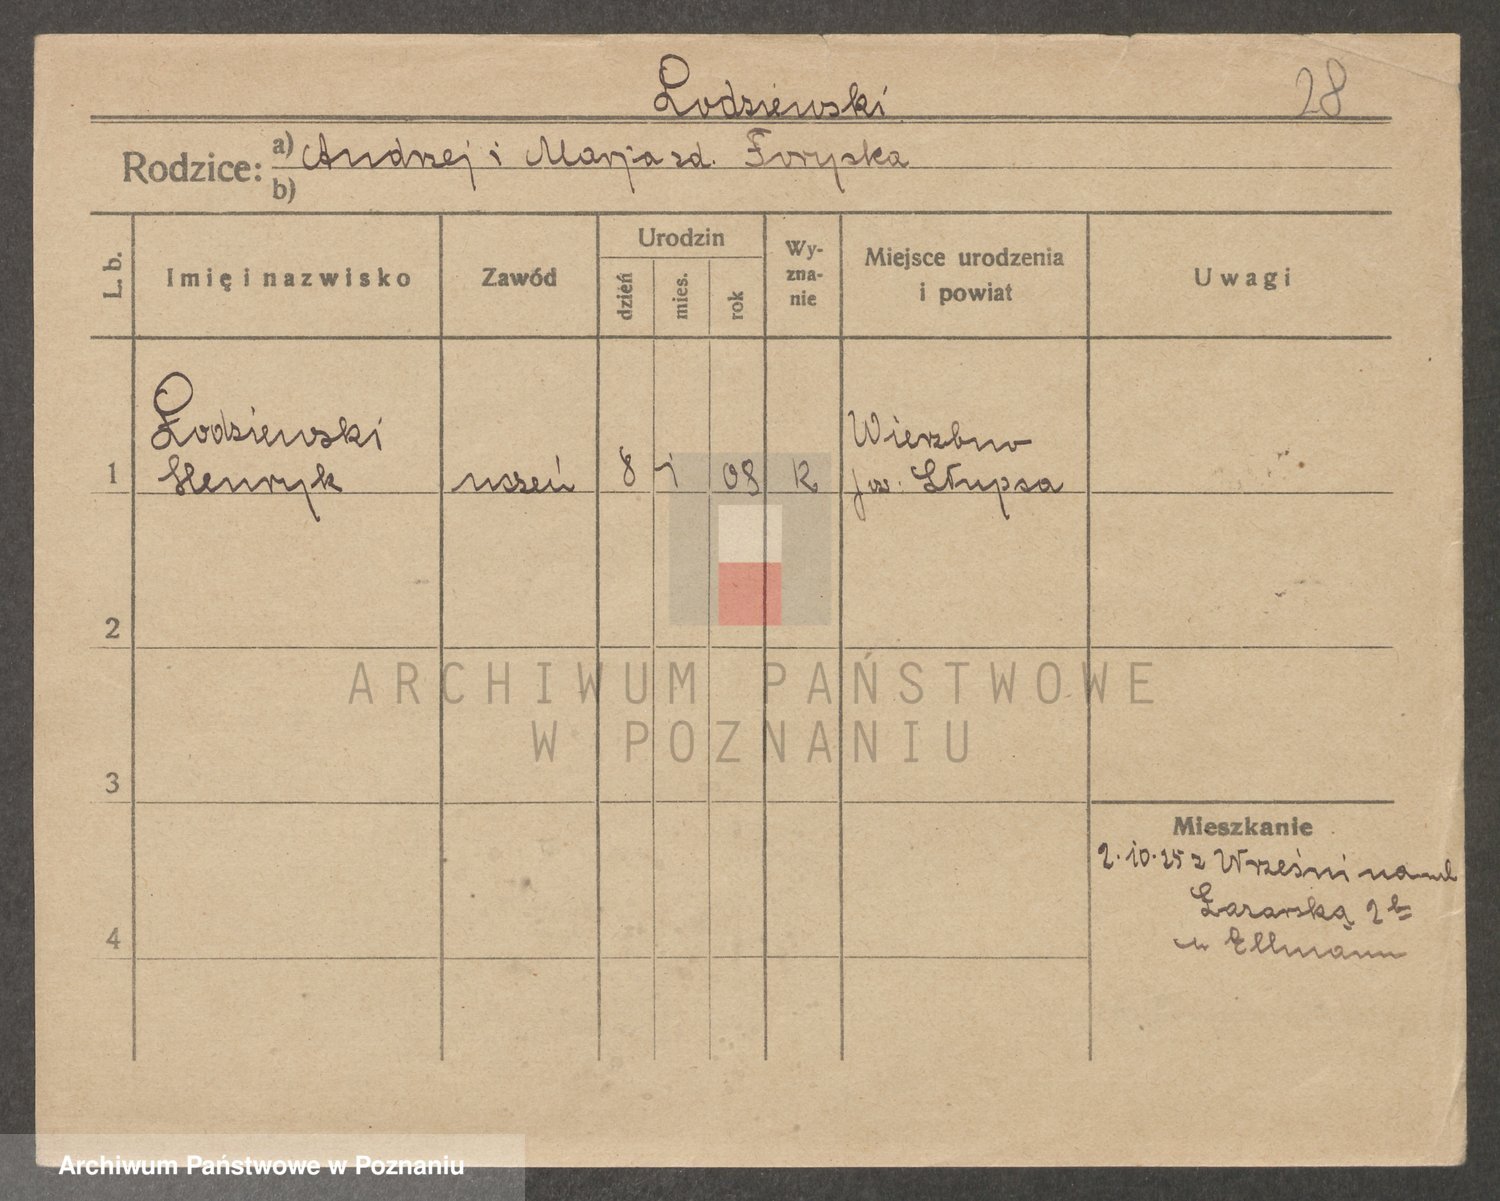 Łodziewski
28
Rodzice: a) Andrzej i Marja zd. Foryska
b)
L. b.
Imię i nazwisko
Zawód
Urodzin
dzień
mies.
rok
Wy-
zna-
nie
Miejsce urodzenia
i powiat
Uwagi
Łodziewski
Henryk
1
uczeń
8
1
08
k
Wierzbno
Słupca
2
3
4
Mieszkanie
2.10.25 z Wrześni na ul
Łazarską 2b
u Ellmann
ARCHIWUM PAŃSTWOWE
W POZNANIU
Archiwum Państwowe w Poznaniu